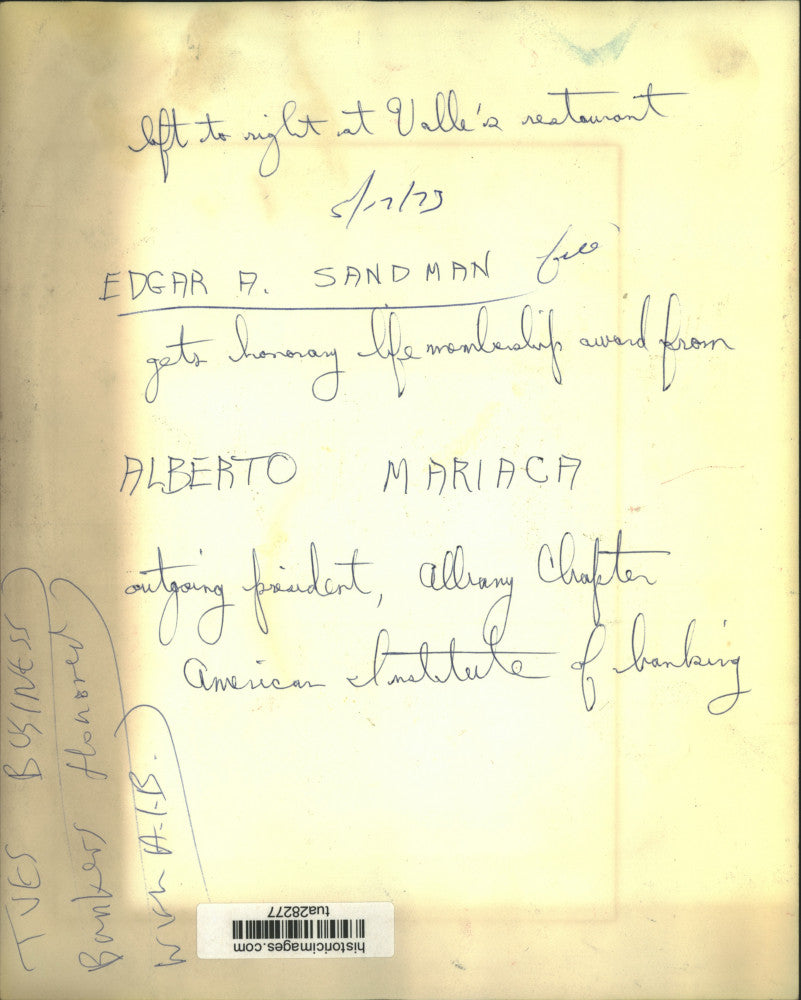 left to right at Valle's restaurant
5/17/73
EDGAR A. SANDMAN file
gets honorary life membership award from
ALBERTO MARIACA
outgoing president, Albany Chapter
American Institute of banking
TUES BUSINESS
Bankers Honored
A.I.B.
historicimages.com
tua28277